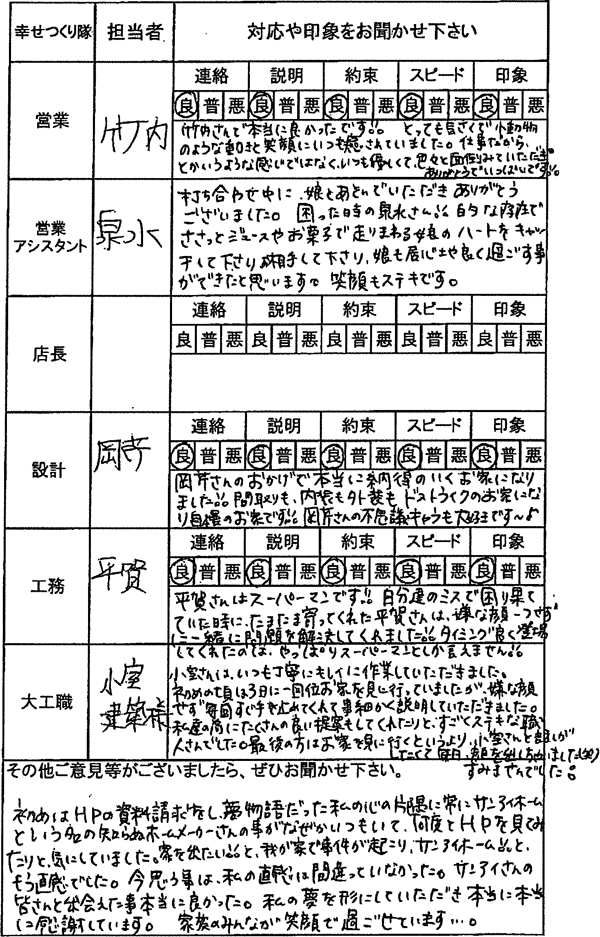 幸せつくり隊 担当者 対応や印象をお聞かせ下さい
連絡 説明 約束 スピード 印象
良 普 悪 良 普 悪 良 普 悪 良 普 悪 良 普 悪
営業 竹内
竹内さんで本当に良かったです!! とっても気さくで小動物
のような動きと笑顔にいつも癒されていました。仕事だから、
とかいうような感じではなく、いつも優しくて、色々と面倒みていただき
ありがとうでいっぱいです!!
営業
アシスタント 泉水
打ち合わせ中に、娘とあそんでいただきありがとう
ございました。困った時の泉水さん!! 的な存在で
ささっとジュースやお菓子で走りまわる娘のハートをキャッ
チして下さり、相手して下さり、娘も居心地や良く過ごす事
ができたと思います。笑顔もステキです。
連絡 説明 約束 スピード 印象
良 普 悪 良 普 悪 良 普 悪 良 普 悪 良 普 悪
店長
連絡 説明 約束 スピード 印象
良 普 悪 良 普 悪 良 普 悪 良 普 悪 良 普 悪
設計 岡芹
岡芹さんのおかげで本当に納得のいくお家になり
ました!! 間取りも、内装も外装も ドストライクのお家にな
り自慢のお家です!! 岡芹さんの不思議キャラも大好きです〜♪
連絡 説明 約束 スピード 印象
良 普 悪 良 普 悪 良 普 悪 良 普 悪 良 普 悪
工務 平賀
平賀さんはスーパーマンです!! 自分達のミスで困り果て
ていた時に、たまたま寄ってくれた平賀さんは、嫌な顔一つせず
に一緒に問題を解決してくれました!! タイミング良く登場
してくれたのは、やっぱりスーパーマンとしか言えません!!
大工職 小室
建築様
小室さんは、いつも丁寧にキレイに作業していただきました。
初めの頃は3日に一回位お家を見に行っていましたが、嫌な顔
せず毎回すぐ手を止めてくれて事細かく説明していただきました。
私達の為にたくさんの良い提案もしてくれたりと、すごくステキな職
人さんでした。最後の方はお家を見に行くというより、小室さんと話しが
したくて毎日、顔を出し ました(笑)
すみませんでした。
その他ご意見等がございましたら、ぜひお聞かせ下さい。
初めはHPの資料請求をし、夢物語だった私の心の片隅に常にサンアイホーム
という名の知らぬホームメーカーさんの事がなぜかいつもいて、何度とHPを見てみ
たりと、気にしていました。家を出たい!!と、我が家で事件が起こり、サンアイホーム!!と、
もう直感でした。今思う事は、私の直感は間違っていなかった。サンアイさんの
皆さんと出会えた事本当に良かった。私の夢を形にしていただき本当に本当
に感謝しています。 家族のみんなが笑顔で過ごせています…。